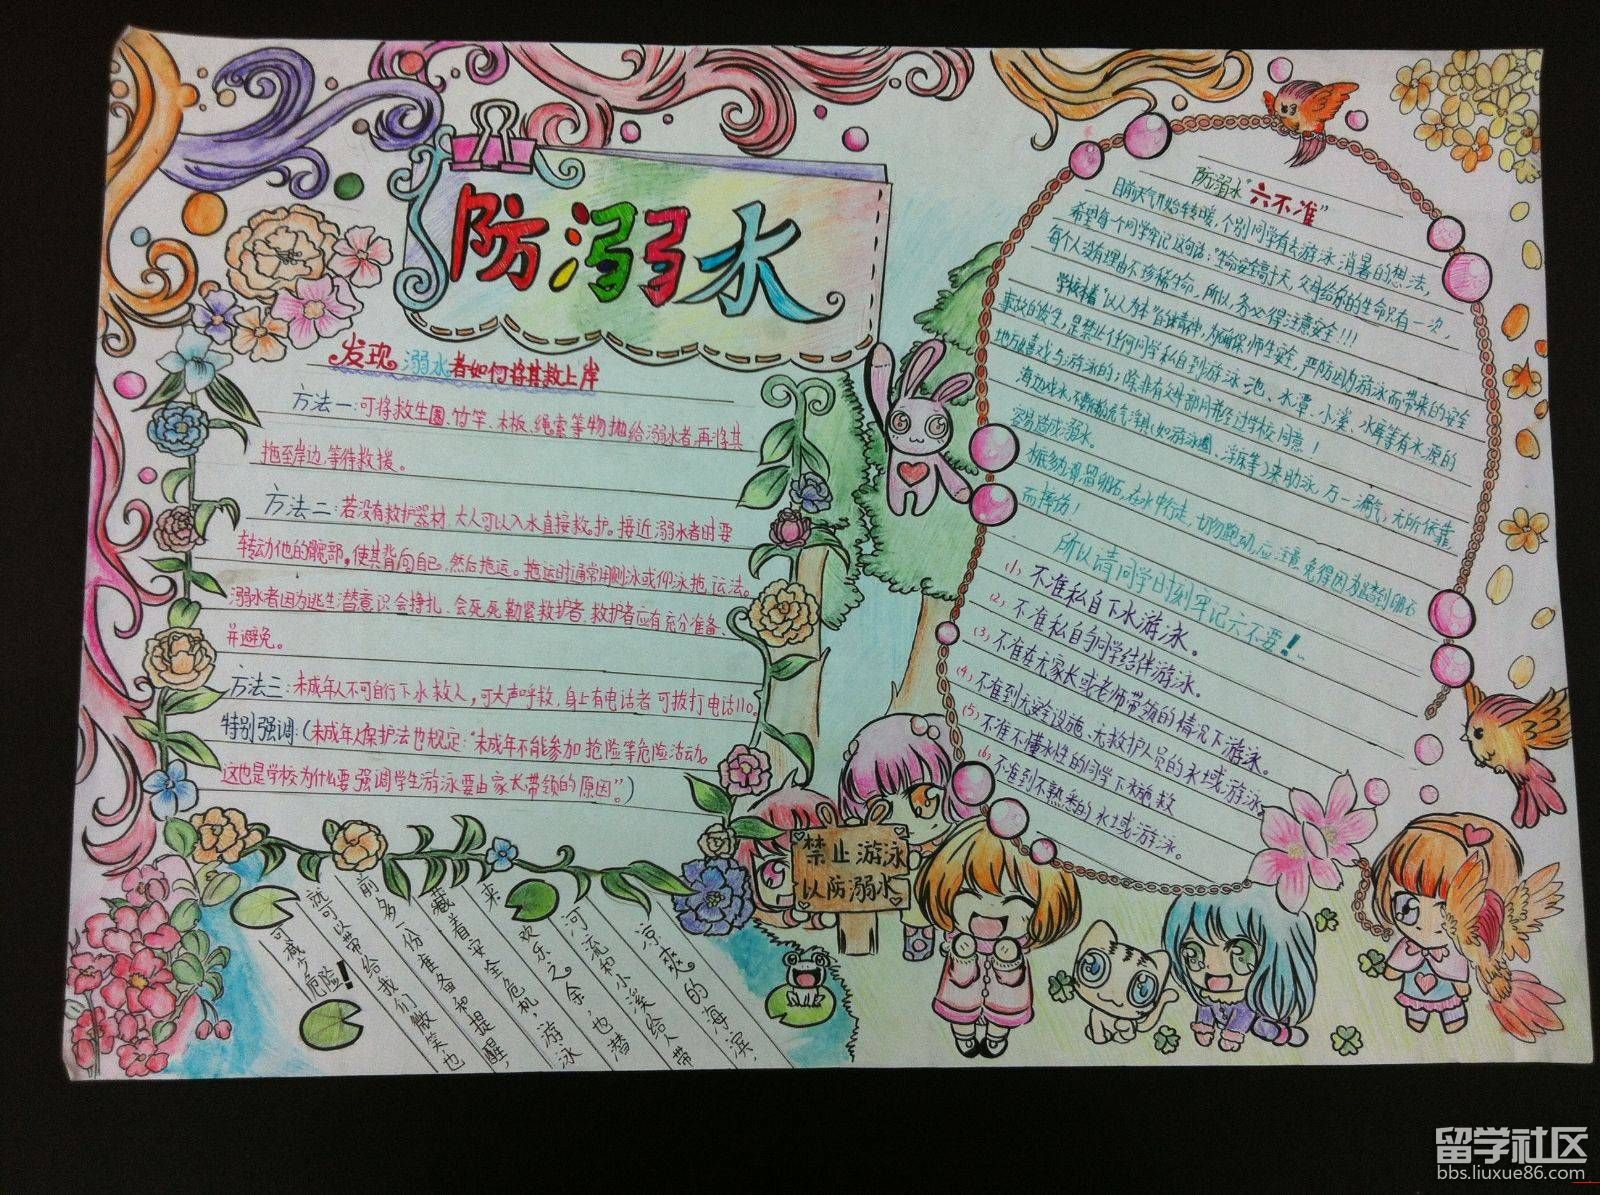 防溺水
发现溺水者如何将其救上岸
方法一:可将救生圈、竹竿、木板、绳索等物抛给溺水者,再将其
拖至岸边,等待救援。
方法二:若没有救护器材,大人可以入水直接救护。接近溺水者时要
转动他的髋部,使其背向自己,然后拖运。拖运时通常用侧泳或仰泳拖运法。
溺水者因为逃生潜意识会挣扎,会死死勒紧救护者,救护者应有充分准备、
并避免。
方法三:未成年人不可自行下水救人,可大声呼救,身上有电话者可拔打电话110。
特别强调:(未成年人保护法也规定:“未成年不能参加抢险等危险活动。
这也是学校为什么要强调学生游泳要由家长带领的原因”。)
凉爽的海滨,
河流和小溪给人带
来
欢乐之余,也潜
藏着安全危机,游泳
前多一份准备和提醒,
就可以带给我们微笑,也
可减少
危险!
禁止游泳
以防溺水
防溺水“六不准”
目前天气开始转暖,个别同学有去游泳消暑的想法,
希望每个同学牢记这句话:“生命安全高于天,父母给你的生命只有一次,
每个人没有理由不珍稀生命,所以,务必得注意安全!!!
学校本着“以人为本”的精神,为确保师生安全,严防因为游泳而带来的安全
事故的发生,是禁止任何同学私自到游泳池、水潭、小溪、水库等有水源的
地方嬉戏与游泳的;除非有父母陪同并经过学校同意!
海边戏水,不要依赖充气浮具(如游泳圈、浮床等)来助泳,万一漏气,无所依靠,
容易造成溺水。
在水中行走,切勿跑动,应注意免得因为踩到卵石
而摔伤!
所以请同学时刻牢记六不要!
(1)不准私自下水游泳。
(2)不准私自与同学结伴游泳。
(3)不准在无家长或老师带领的情况下游泳。
(4)不准到无安全设施、无救护人员的水域游泳。
(5)不准不懂水性的同学下水施救
(6)不准到不熟悉的水域游泳。
留学社区
bbs.liuxue86.com